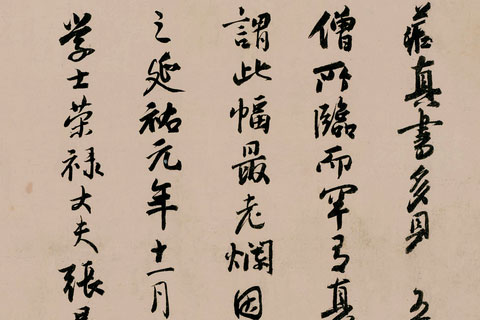 藏真書多見
僧所臨而罕有真
謂此幅最老爛因
之延祐元年十一月
学士荣禄大夫張